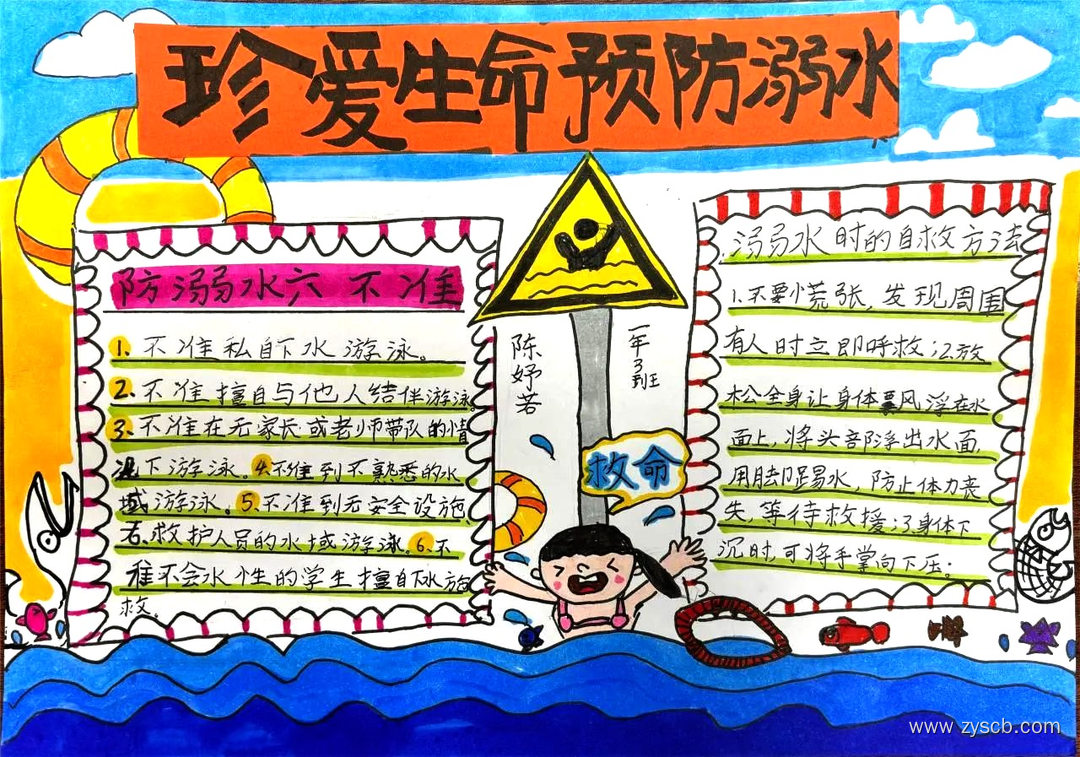 珍爱生命预防溺水
防溺水六不准
1. 不准私自下水游泳。
2. 不准擅自与他人结伴游泳
3. 不准在无家长或老师带队的情
况下游泳。4. 不准到不熟悉的水
域游泳。5. 不准到无安全设施,
无救护人员的水域游泳。6. 不
准不会水性的学生擅自下水施
救。
陈妤若
一年3班
救命
溺水时的自救方法
1. 不要慌张,发现周围
有人时立即呼救;2. 放
松全身让身体飘浮在水
面上,将头部浮出水面,
用脚踢水,防止体力丧
失,等待救援;3. 身体下
沉时,可将手掌向下压;
www.zyscb.com